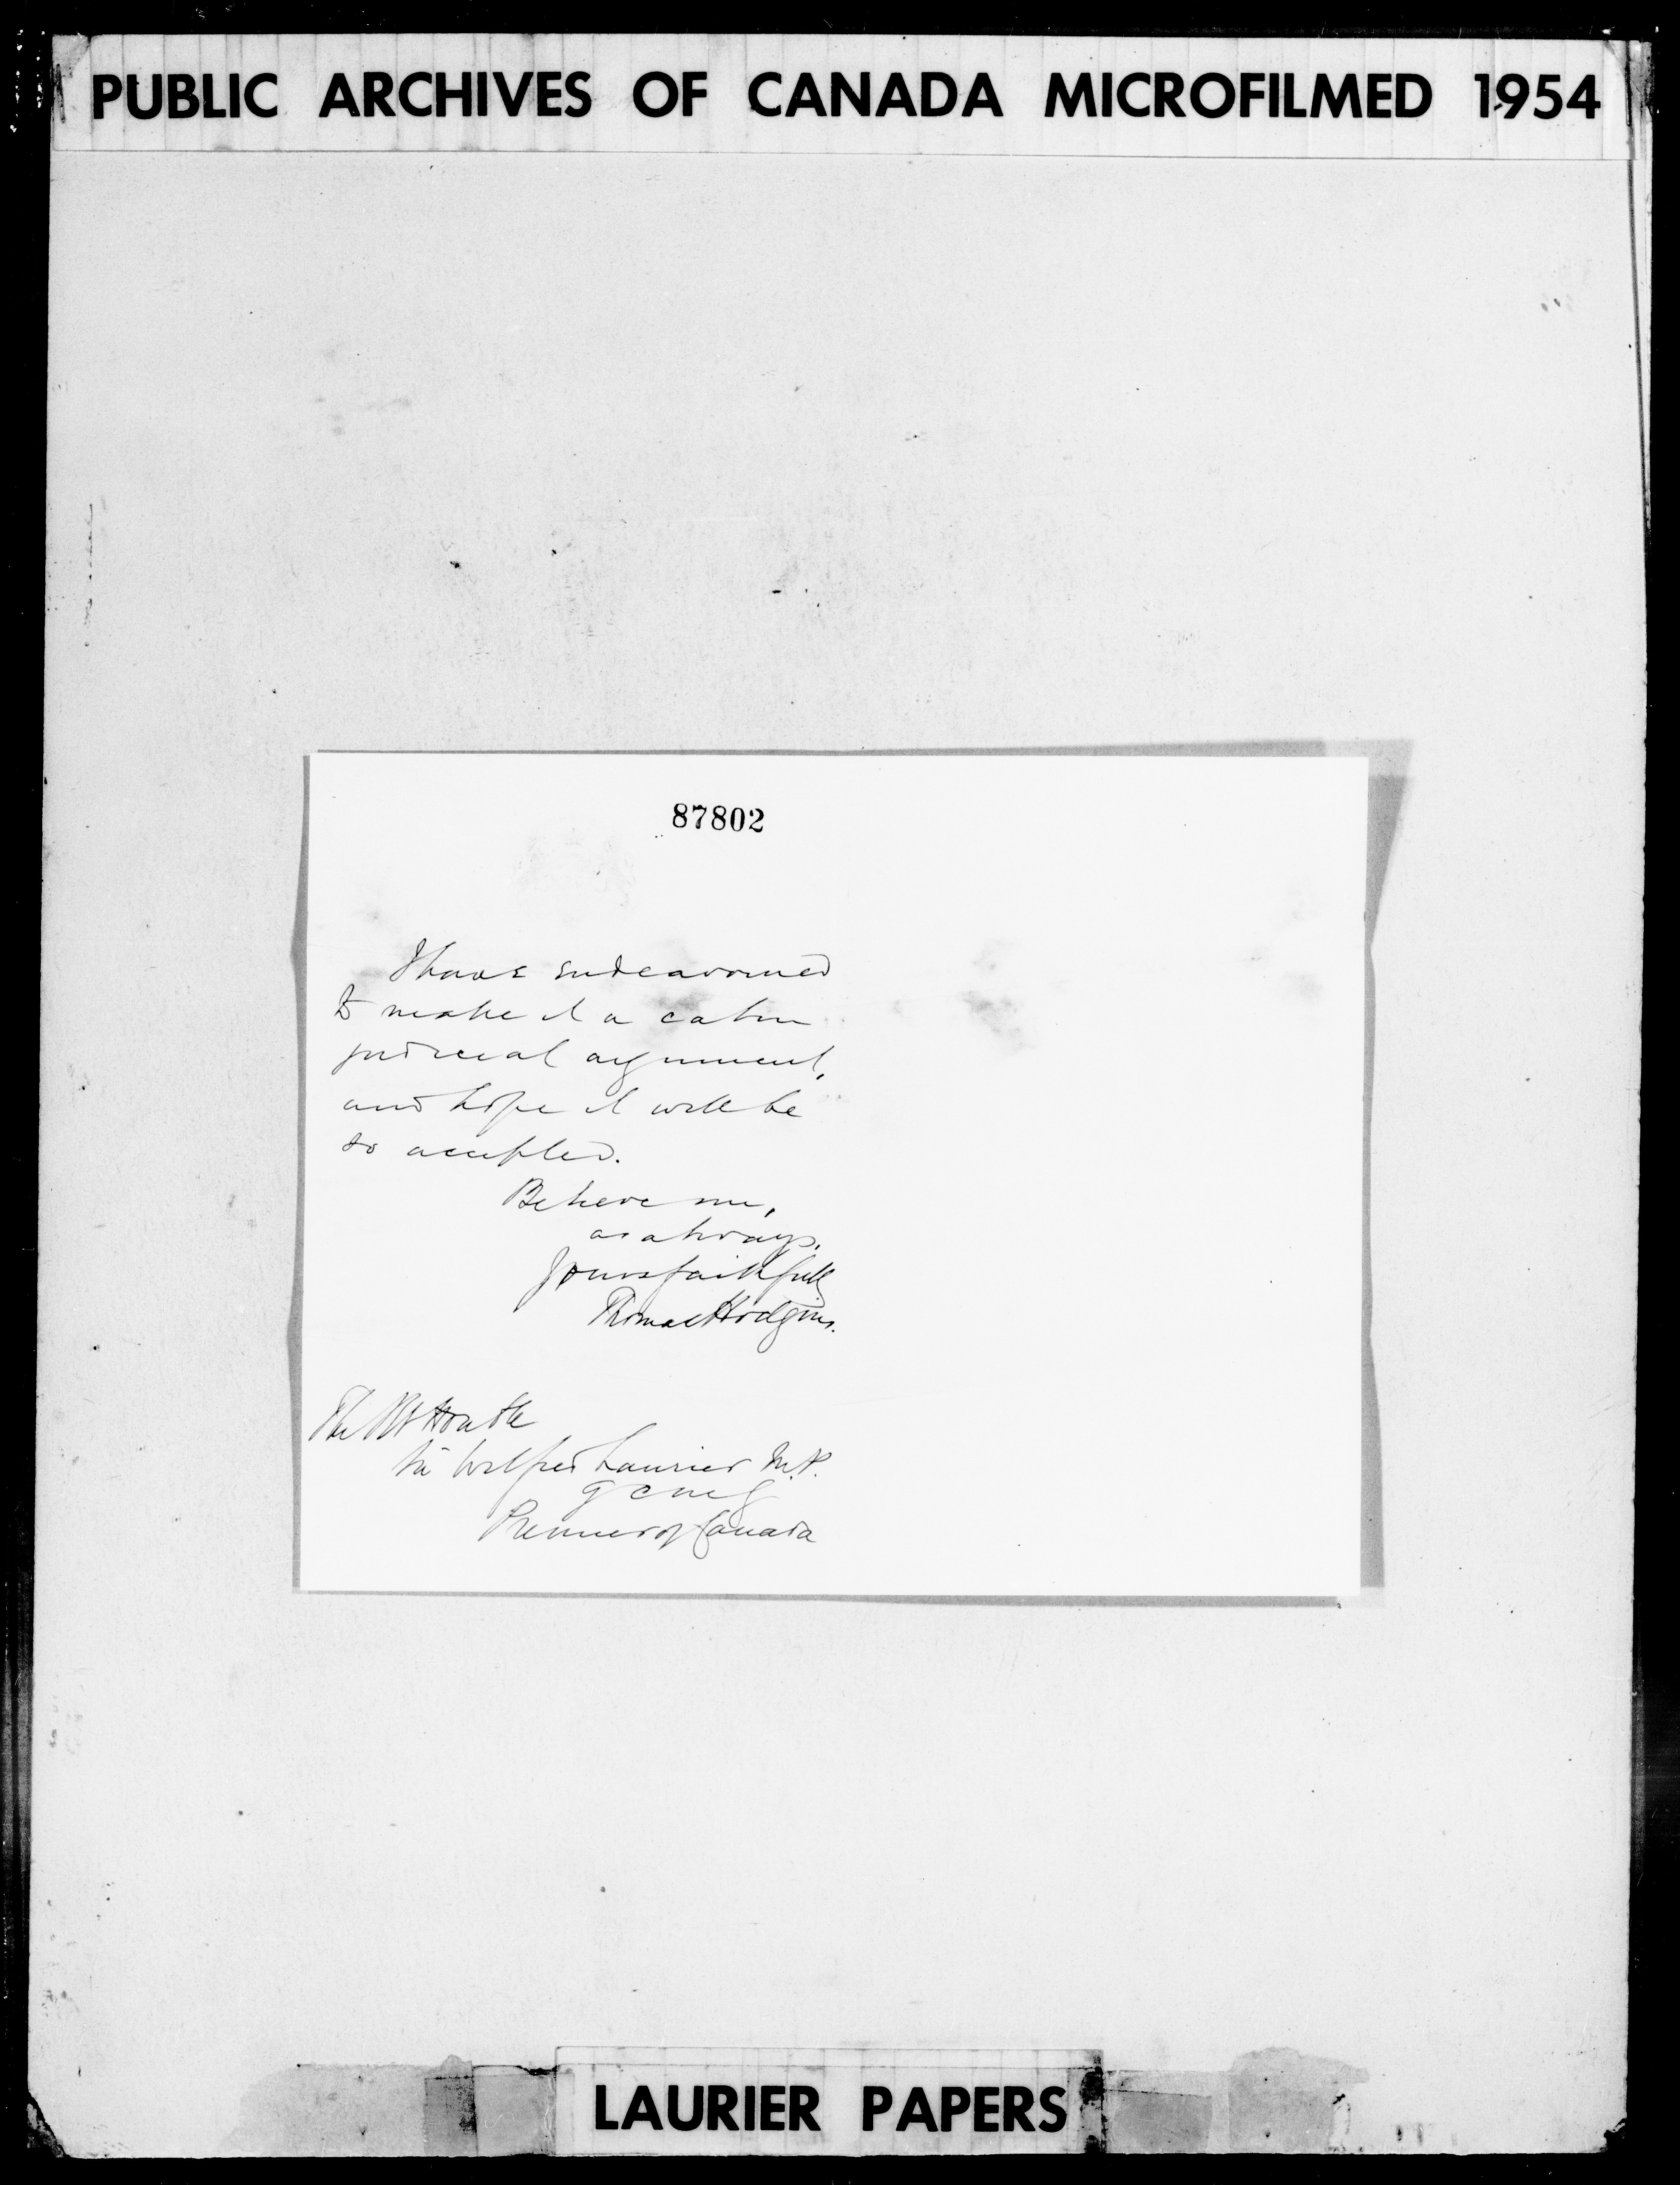 PUBLIC ARCHIVES OF CANADA MICROFILMED 1954
87802
I have endeavoured
to make it a calm
judicial argument,
and hope it will be
so accepted.
Believe me,
as always,
Yours faithfully
Thomas Hodgins.
The Rt Honble
Sir Wilfred Laurier M.P.
GCMG
Premier of Canada
LAURIER PAPERS